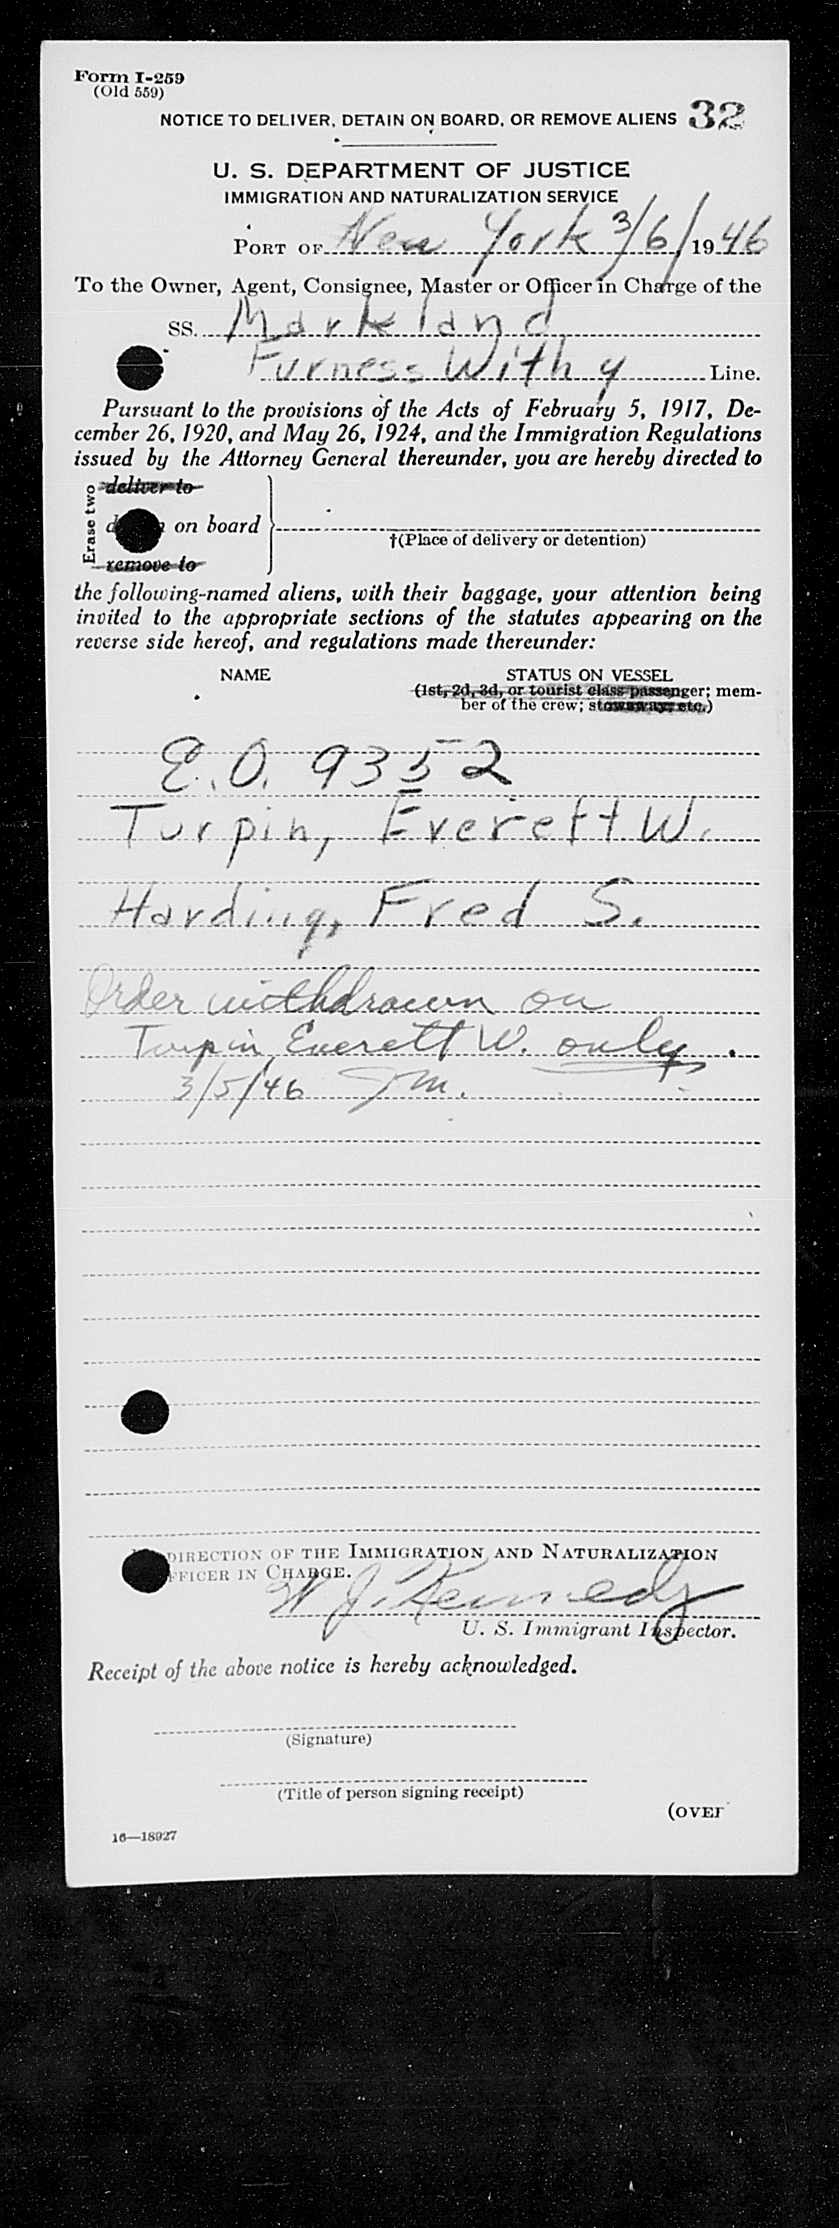 Form I-259
(Old 559)
NOTICE TO DELIVER, DETAIN ON BOARD, OR REMOVE ALIENS 32
U. S. DEPARTMENT OF JUSTICE
IMMIGRATION AND NATURALIZATION SERVICE
PORT OF New York 3/6/1946
To the Owner, Agent, Consignee, Master or Officer in Charge of the
SS. Markland
Furness Withy Line.
Pursuant to the provisions of the Acts of February 5, 1917, De-
cember 26, 1920, and May 26, 1924, and the Immigration Regulations
issued by the Attorney General thereunder, you are hereby directed to
Erase two
deliver to
on board
†(Place of delivery or detention)
remove to
the following-named aliens, with their baggage, your attention being
invited to the appropriate sections of the statutes appearing on the
reverse side hereof, and regulations made thereunder:
NAME STATUS ON VESSEL
(1st, 2d, 3d, or tourist class passenger; mem-
ber of the crew; stowaway; etc.)
E.O. 9352
Turpin, Everett W.
Harding, Fred S.
Order withdrawn on
Turpin, Everett W. only.
3/5/46 JM.
DIRECTION OF THE IMMIGRATION AND NATURALIZATION
OFFICER IN CHARGE.
W J. Kennedy
U. S. Immigrant Inspector.
Receipt of the above notice is hereby acknowledged.
(Signature)
(Title of person signing receipt)
(OVER
16—18927